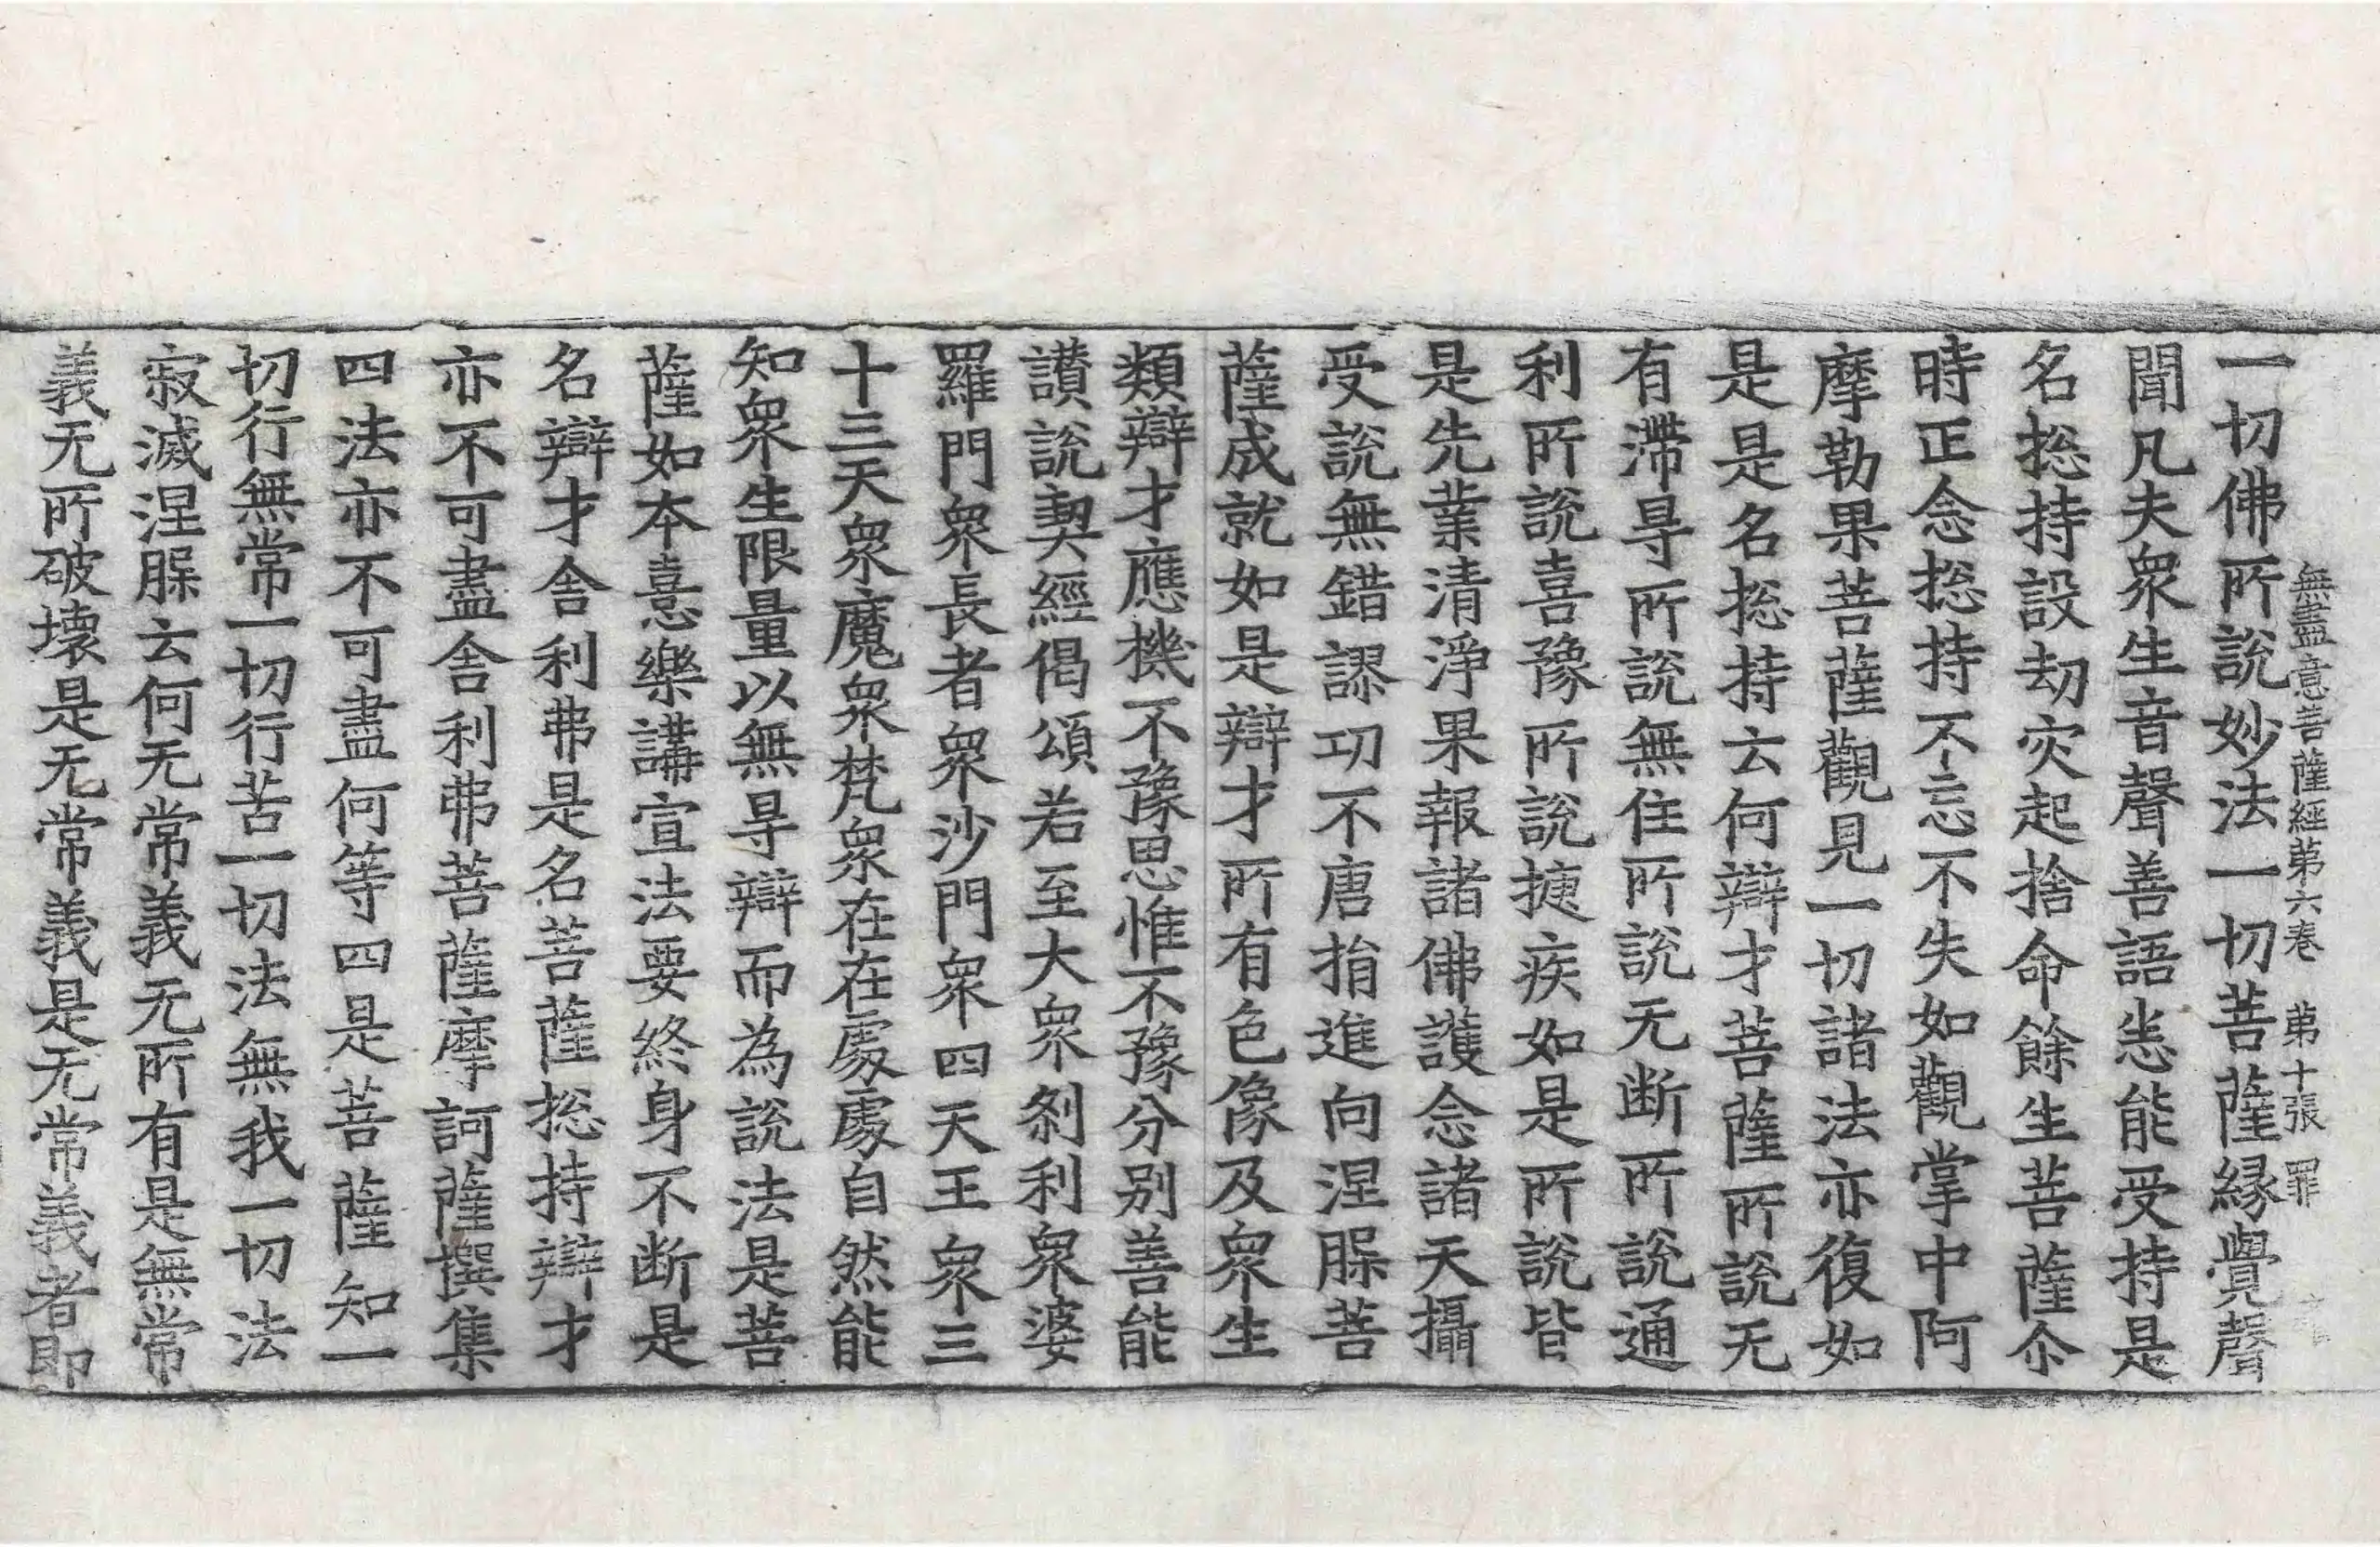 無盡意菩薩經第六卷 第十張 罪
一切佛所說妙法一切菩薩緣覺聲
聞凡夫衆生音聲善語悉能受持是
名捴持設劫灾起捨命餘生菩薩尒
時正念捴持不忘不失如觀掌中阿
摩勒果菩薩觀見一切諸法亦復如
是是名捴持云何辯才菩薩所說无
有滯㝵所說無住所說无断所說通
利所說喜豫所說揵疾如是所說皆
是先業清淨果報諸佛護念諸天攝
受說無錯謬功不唐捐進向涅槃菩
薩成就如是辯才所有色像及衆生
類辯才應機不豫思惟不豫分別善能
讃說契經偈頌若至大衆刹利衆婆
羅門衆長者衆沙門衆四天王衆三
十三天衆魔衆梵衆在在處處自然能
知衆生限量以無㝵辯而為說法是菩
薩如本憙樂講宣法要終身不断是
名辯才舍利弗是名菩薩捴持辯才
亦不可盡舍利弗菩薩摩訶薩撰集
四法亦不可盡何等四是菩薩知一
切行無常一切行苦一切法無我一切法
寂滅涅槃云何无常義无所有是無常
義无所破壞是无常義是无常義者即